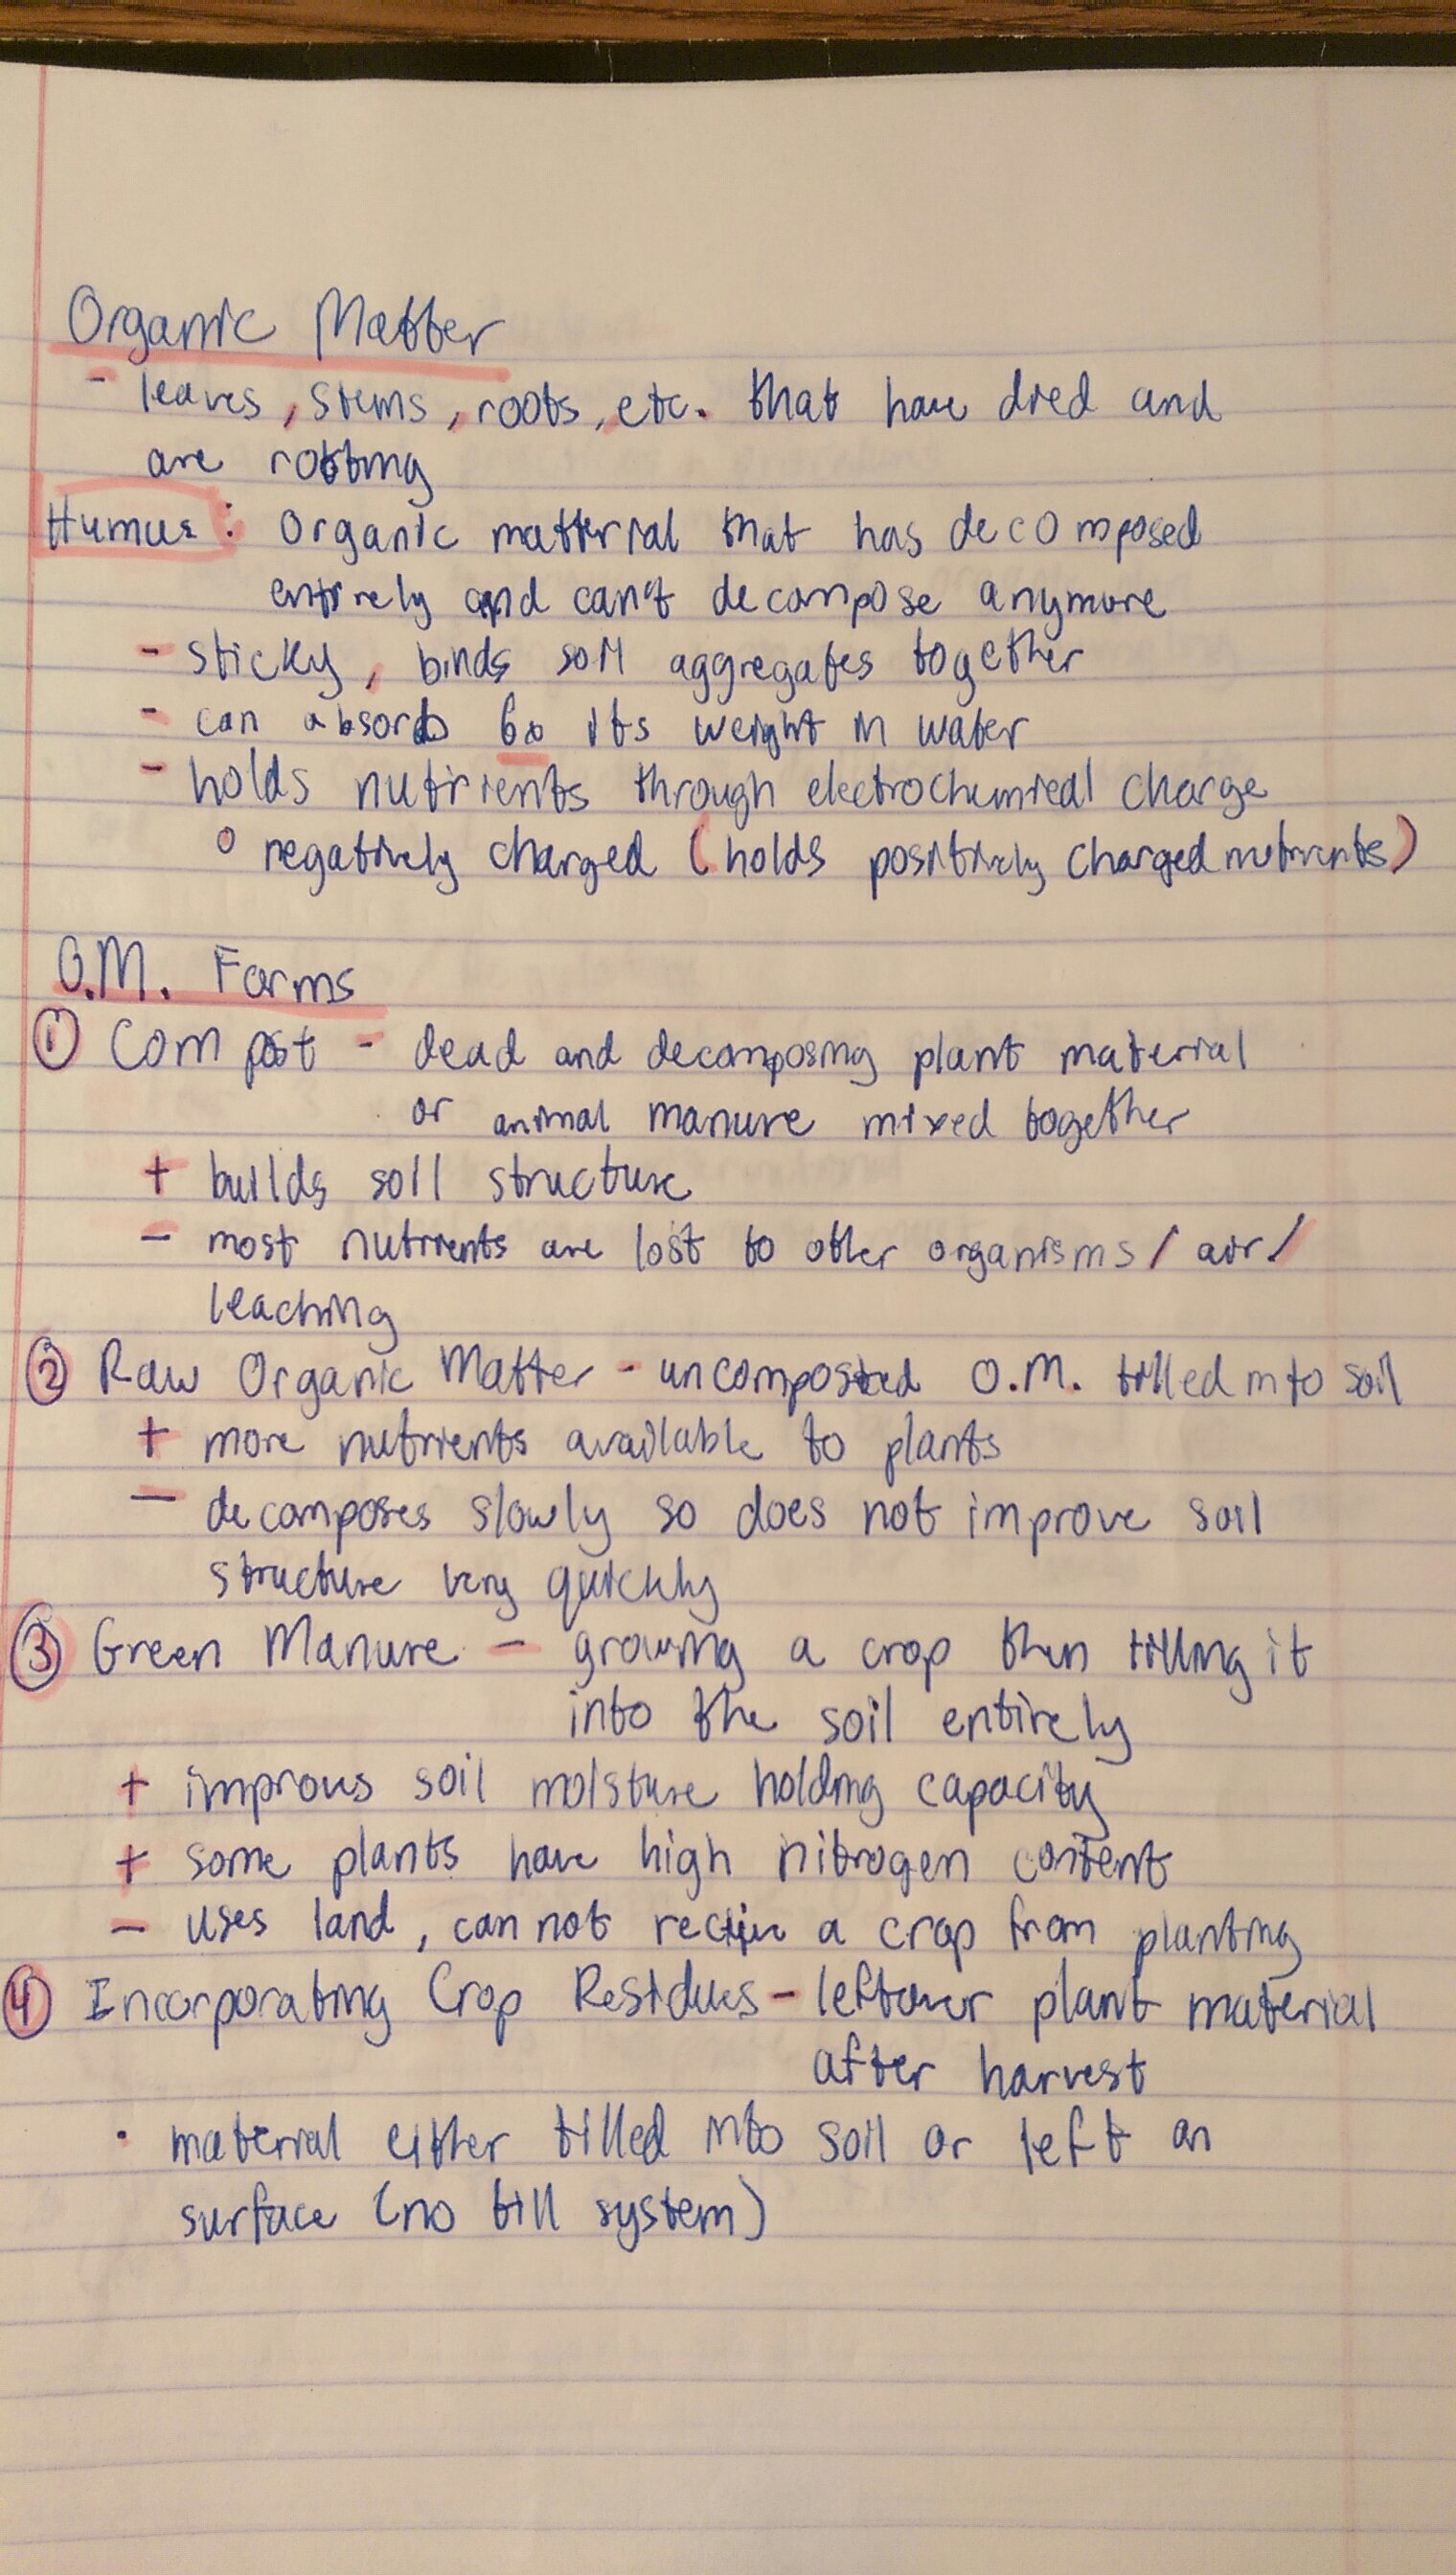 Organic Matter
- leaves, stems, roots, etc. that have died and
are rotting
Humus: organic matterial that has decomposed
entirely and can't decompose anymore
- sticky, binds soil aggregates together
- can absorb 6x its weight in water
- holds nutrients through electrochemical charge
o negatively charged (holds positively charged nutrients)
O.M. Forms
① Compost - dead and decomposing plant material
or animal manure mixed together
+ builds soil structure
- most nutrients are lost to other organisms / air /
leaching
② Raw Organic Matter - uncomposted O.M. tilled into soil
+ more nutrients available to plants
- decomposes slowly so does not improve soil
structure very quickly
③ Green Manure - growing a crop then tilling it
into the soil entirely
+ improves soil moisture holding capacity
+ some plants have high nitrogen content
- uses land, can not a crop from planting
④ Incorporating Crop Residues - leftover plant material
after harvest
• material either tilled into soil or left on
surface (no till system)